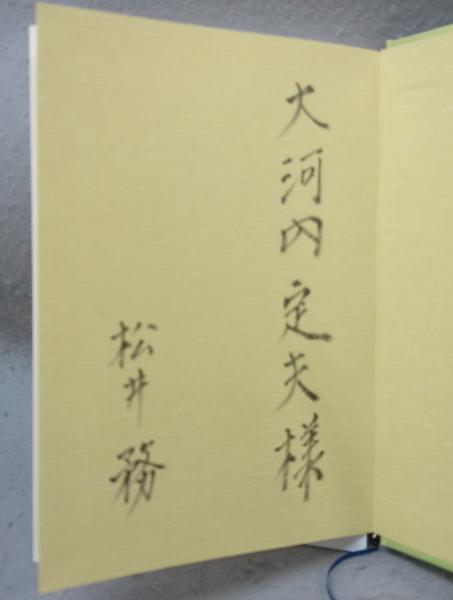 大河内定夫様
松井務